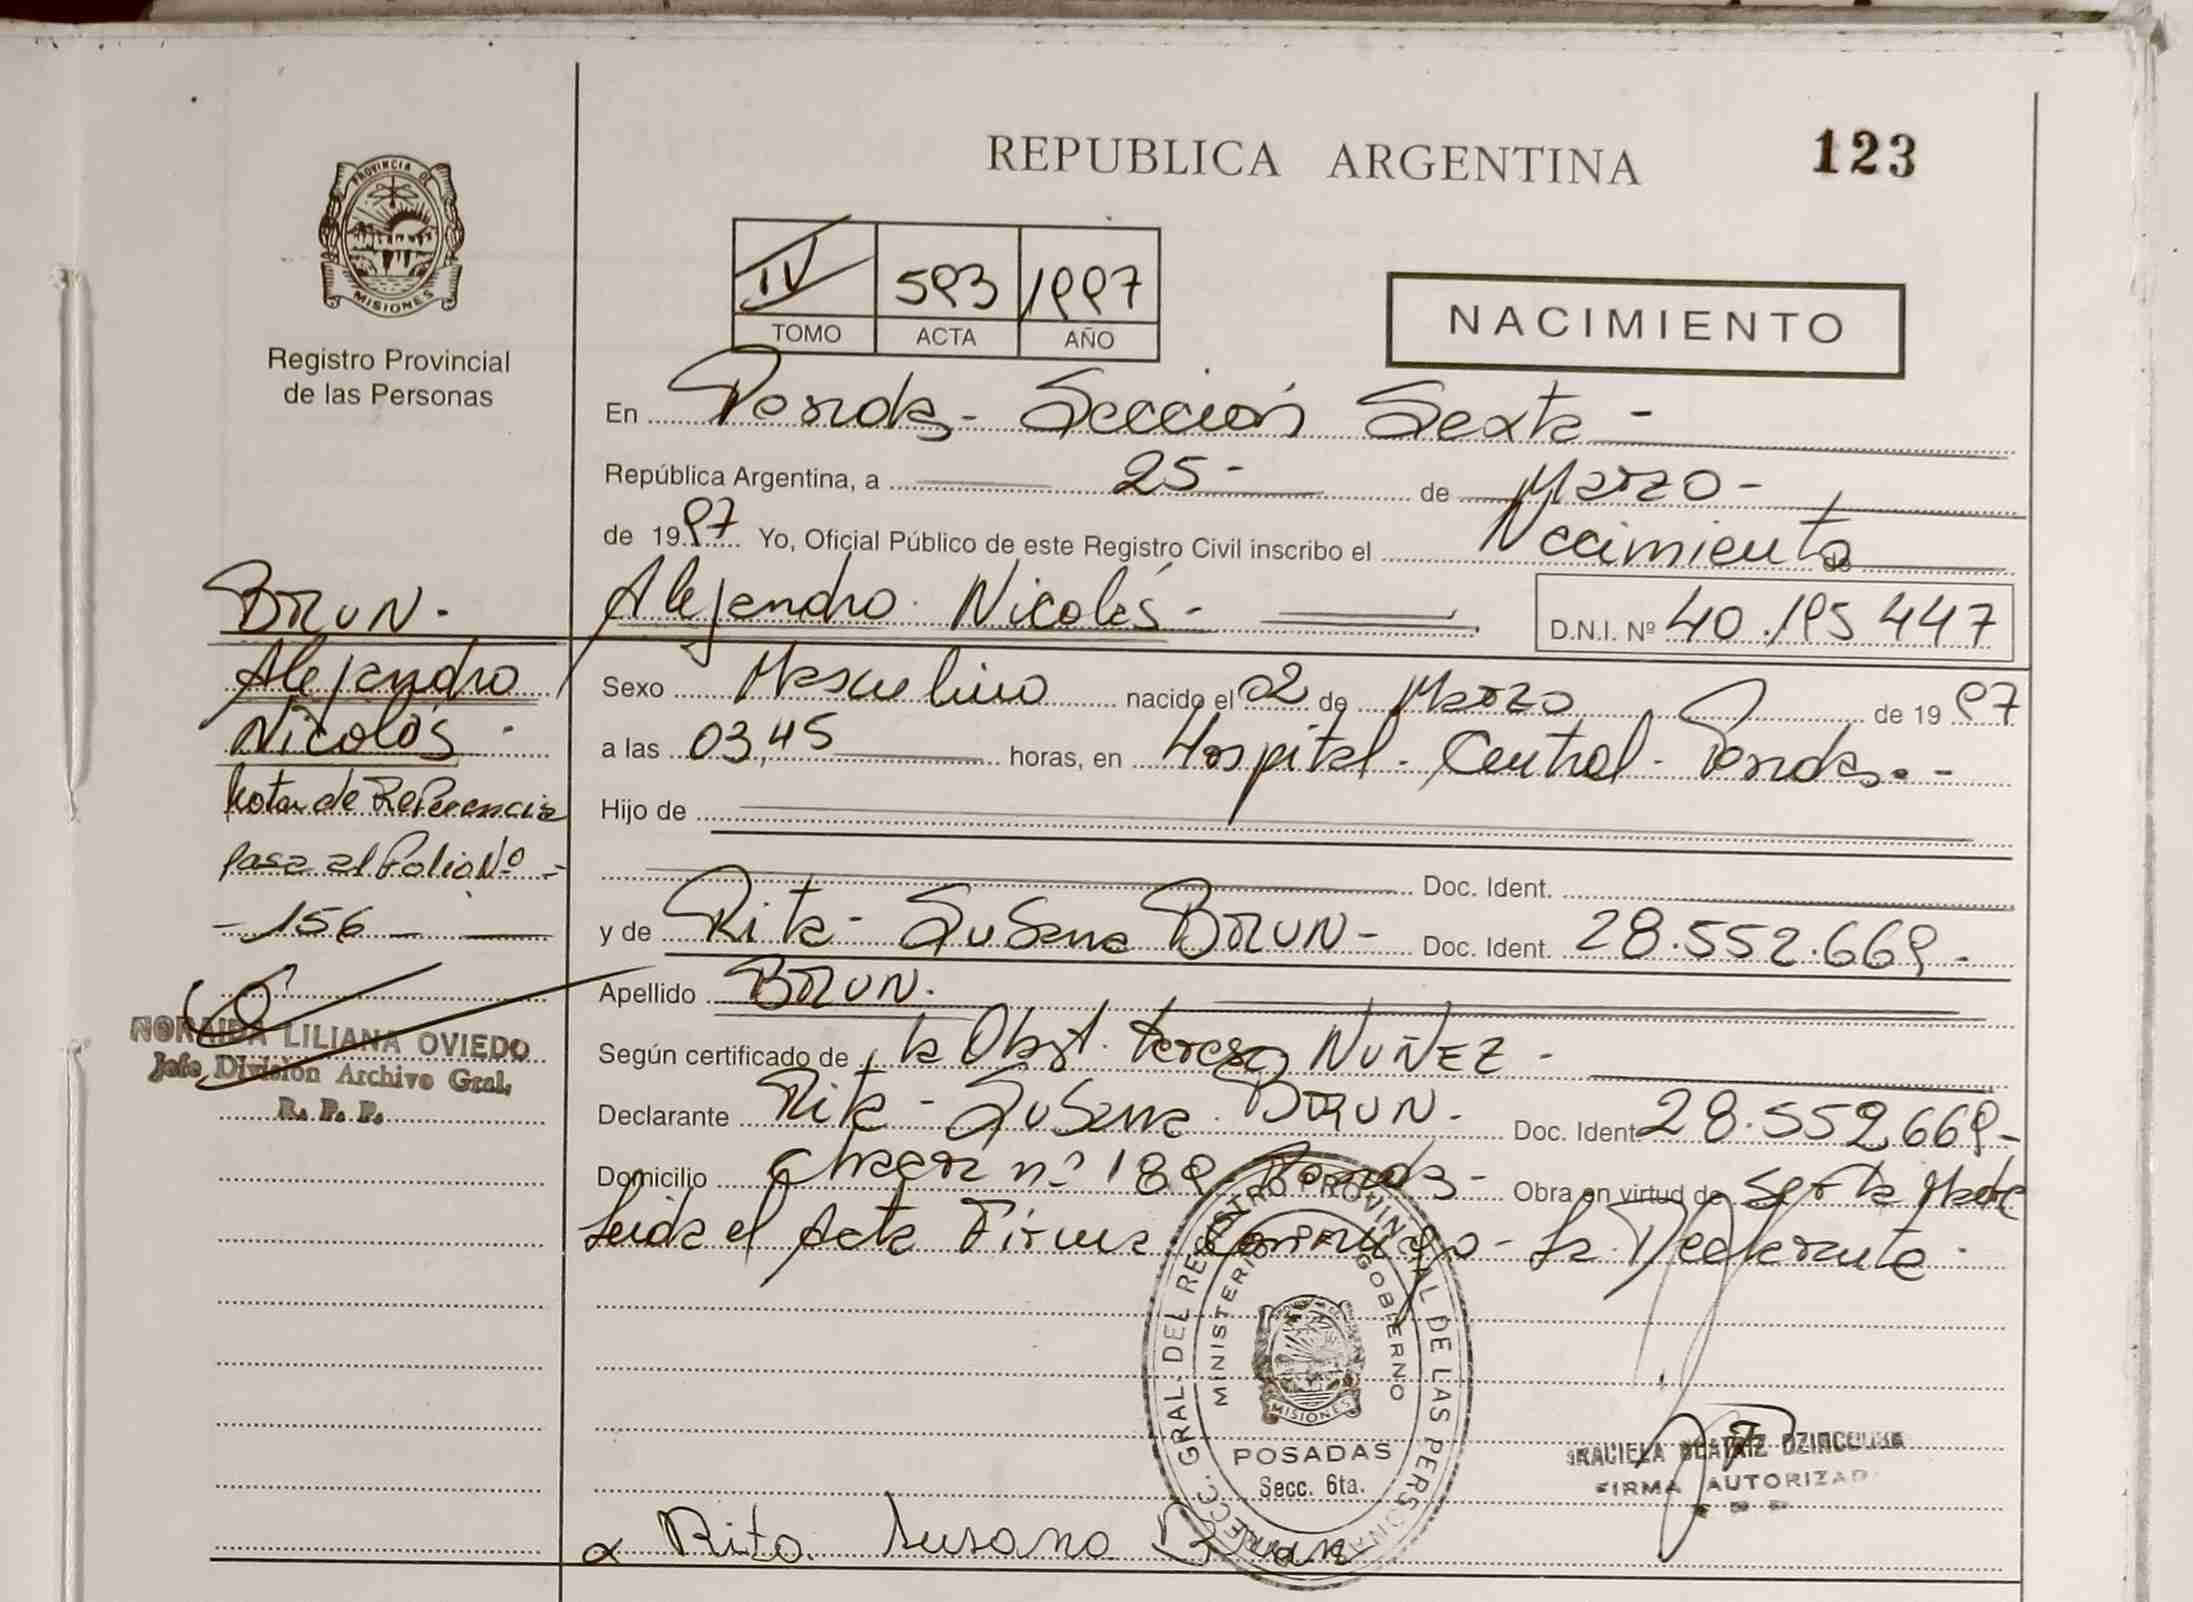 REPUBLICA ARGENTINA
123
PROVINCIA DE
MISIONES
Registro Provincial
de las Personas
IV 593 1997
TOMO ACTA AÑO
NACIMIENTO
En Posadas - Sección Sexta -
República Argentina, a 25 - de Marzo -
de 1997 Yo, Oficial Público de este Registro Civil inscribo el Nacimiento de
Alejandro Nicolás - D.N.I. Nº 40.195 447
BRUN -
Alejandro
Nicolás -
Nota de Referencia
pasa al Folio Nº -
- 156 -
NORAIDA LILIANA OVIEDO
Jefe División Archivo Gral.
R. P. P.
Sexo Masculino nacido el 02 de Marzo de 1997
a las 03,45 horas, en Hospital - Central - Posadas. -
Hijo de
Doc. Ident.
y de Rita - Susana BRUN - Doc. Ident. 28.552.669 -
Apellido BRUN.
Según certificado de la Obst. Teresa NUÑEZ -
Declarante Rita - Susana BRUN - Doc. Ident 28.552.669 -
Domicilio Chacra nº 189 Posadas - Obra en virtud de ser la Madre
Leida el Acta Firma Conmigo - La Declarante.
DIRECC. GRAL. DEL REGISTRO PROVINCIAL DE LAS PERSONAS
MINISTERIO GOBIERNO
MISIONES
POSADAS
Secc. 6ta.
GRACIELA BEATRIZ
FIRMA AUTORIZAD
Rita Susana Brun